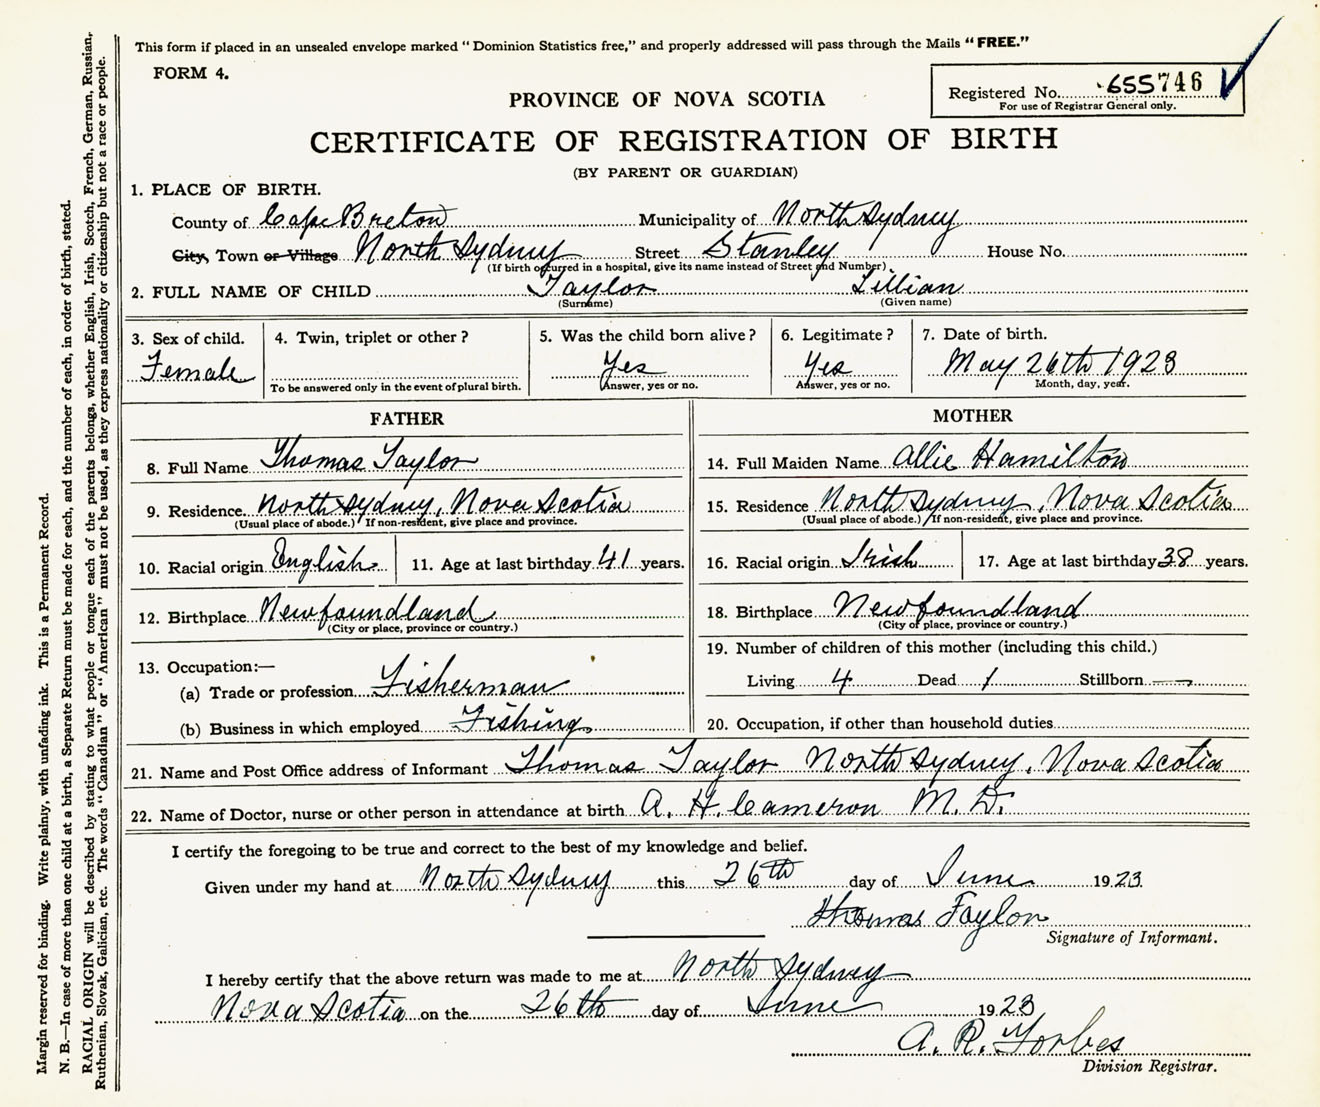 This form if placed in an unsealed envelope marked "Dominion Statistics free," and properly addressed will pass through the Mails "FREE."
FORM 4.
Registered No. 655746
For use of Registrar General only.
PROVINCE OF NOVA SCOTIA
CERTIFICATE OF REGISTRATION OF BIRTH
(BY PARENT OR GUARDIAN)
1. PLACE OF BIRTH.
County of Cape Breton Municipality of North Sydney
City, Town or Village North Sydney Street Stanley House No.
(If birth occurred in a hospital, give its name instead of Street and Number)
2. FULL NAME OF CHILD Taylor Lillian
(Surname) (Given name)
3. Sex of child. 4. Twin, triplet or other? 5. Was the child born alive? 6. Legitimate? 7. Date of birth.
Female Yes Yes May 26th 1923
To be answered only in the event of plural birth. Answer, yes or no. Answer, yes or no. Month, day, year.
FATHER
8. Full Name Thomas Taylor
9. Residence North Sydney, Nova Scotia
(Usual place of abode.) If non-resident, give place and province.
10. Racial origin English 11. Age at last birthday 41 years.
12. Birthplace Newfoundland
(City or place, province or country.)
13. Occupation:—
(a) Trade or profession Fisherman
(b) Business in which employed Fishing
MOTHER
14. Full Maiden Name Allie Hamilton
15. Residence North Sydney, Nova Scotia
(Usual place of abode.) If non-resident, give place and province.
16. Racial origin Irish 17. Age at last birthday 38 years.
18. Birthplace Newfoundland
(City or place, province or country.)
19. Number of children of this mother (including this child.)
Living 4 Dead 1 Stillborn —
20. Occupation, if other than household duties
21. Name and Post Office address of Informant Thomas Taylor North Sydney, Nova Scotia
22. Name of Doctor, nurse or other person in attendance at birth A. H. Cameron M. D.
I certify the foregoing to be true and correct to the best of my knowledge and belief.
Given under my hand at North Sydney this 26th day of June 1923
Thomas Taylor
Signature of Informant.
I hereby certify that the above return was made to me at North Sydney
Nova Scotia on the 26th day of June 1923
A. R. Forbes
Division Registrar.
Margin reserved for binding. Write plainly, with unfading ink. This is a Permanent Record.
N. B.—In case of more than one child at a birth, a Separate Return must be made for each, and the number of each, in order of birth, stated.
RACIAL ORIGIN will be described by stating to what people or tongue each of the parents belongs, whether English, Irish, Scotch, French, German, Russian,
Ruthenian, Slovak, Galician, etc. The words "Canadian" or "American" must not be used, as they express nationality or citizenship but not a race or people.